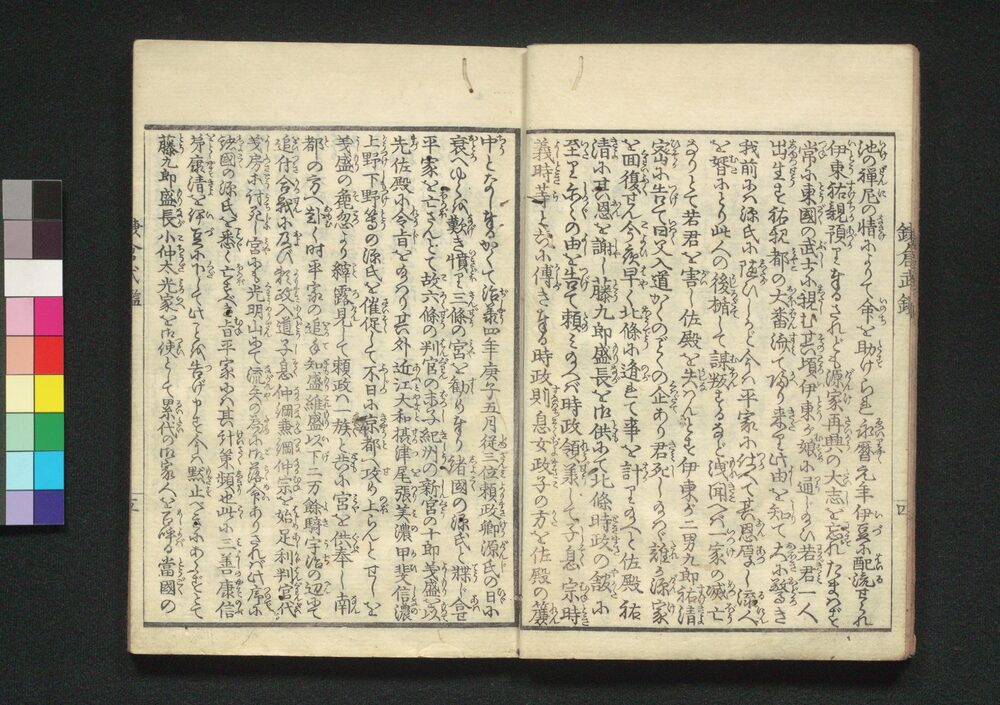 池の禅尼の情によりて命を助けられ永暦元年伊豆に配流せられ
伊東祐親預りとなるされども源家再興の大志を忘れたまはず
常に東國の武士に親む其頃伊東が娘に通じ若君一人
出生す祐親都の大番流て帰り来り此由を知て大に驚き
我前には源氏に随ひしかど今は平家に仕へて其恩厚し流人
を婿にとり此人の後楯して謀叛するなど洩聞へば一家の滅亡
なりとて若君を害し佐殿を失はんとす伊東が二男九郎祐清
密に告て曰父入道かく〳〵の企あり君死し給はゞ誰か源家
を回復せん今夜早く北條に逃れて事を計り給へと佐殿祐
清に其恩を謝し藤九郎盛長を御供にて北條時政の館に
至り云々の由を告て頼み給へば時政領掌して子息宗時
義時等と共に傅きける時政則息女政子の方を佐殿の簾
中となしけるかくて治承四年庚子五月従三位頼政卿源氏の日に
衰へゆくを歎き憤り三條の宮を勧めまゐり諸國の源氏と牒し合せ
平家を亡さんとて故六條の判官の末子紀州の新宮の十郎義盛を以
先佐殿に令旨をまゐり其外近江大和攝津尾張美濃甲斐信濃
上野下野等の源氏を催促して不日に京都へ攻め上らんとせしを
義盛の麁忽より縡露見して頼政は一族と共に宮を供奉し南
都の方へ引く時平家の追手知盛維盛以下二万餘騎宇治の辺にて
追付合戦に及び頼政入道子息仲綱兼綱仲宗を始足利判官代
義房等討死し宮も光明山にて流矢の為に落命ありされば此序に
諸國の源氏を悉く亡すべき旨平家には其計策頻也此に三善康信
弟康清を伊豆に下して此ことを告げけり今は黙止べきにあらずとて
藤九郎盛長小仲太光家を御使として累代の御家人を召呼る當國の
鎌倉武鑑
四
三